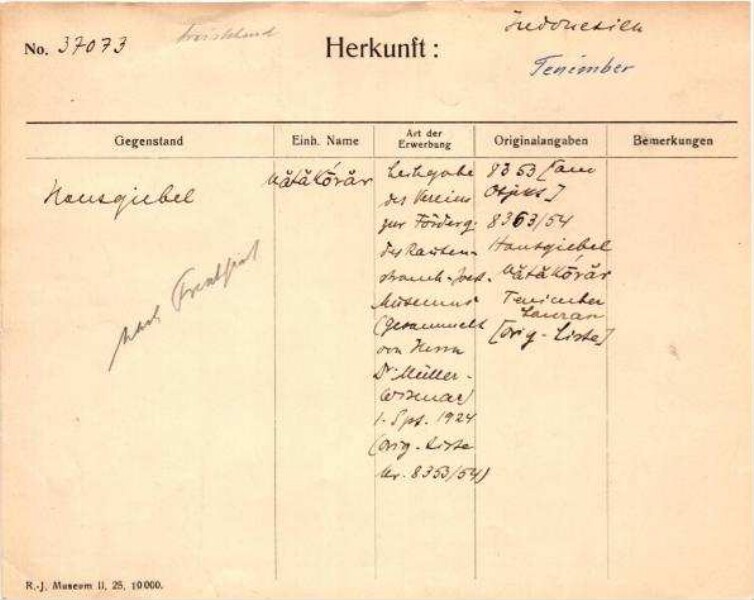 No. 37073
Herkunft:
Indonesien
Tenimber
Gegenstand
Einh. Name
Art der
Erwerbung
Originalangaben
Bemerkungen
Hausgiebel
Leihgabe
des Vereins
zur Förderg.
des Rauten-
strauch-Joest-
Museums
(Gesammelt
von Herrn
Dr. Müller-
Wismar)
1. Spt. 1924
(Orig.-Liste
Nr. 8353/54)
8353 [am
Objekt]
8353/54
Hausgiebel
Tenimber
[Orig-Liste]
nach Frankfurt
R.-J. Museum II, 25, 10000.